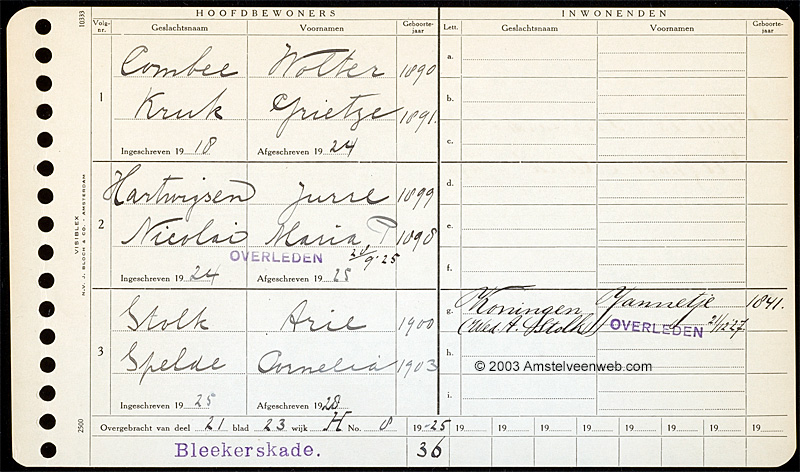 HOOFDBEWONERS INWONENDEN
10333
Volg-nr. Geslachtsnaam Voornamen Geboorte-jaar Lett. Geslachtsnaam Voornamen Geboorte-jaar
1
Combee Wolter 1890
Kruk Grietje 1891.
Ingeschreven 1918 Afgeschreven 1924
a.
b.
c.
2
Hartwijsen Jurre 1899
Nicolai Maria P 1898
OVERLEDEN 24/9-25
Ingeschreven 1924 Afgeschreven 1925
d.
e.
f.
VISIBLEX
N.V. J. BLOCH & Co. - AMSTERDAM
3
Stolk Arie 1900
Spelde Cornelia 1903
Ingeschreven 1925 Afgeschreven 1928
g. Koningen Jannetje 1841.
(Wed A. Stolk) OVERLEDEN 21/1227.
h.
i.
© 2003 Amstelveenweb.com
2500
Overgebracht van deel 21 blad 23 wijk H No. 8 19-25 19 19 19 19 19 19 19 19
Bleekerskade. 36